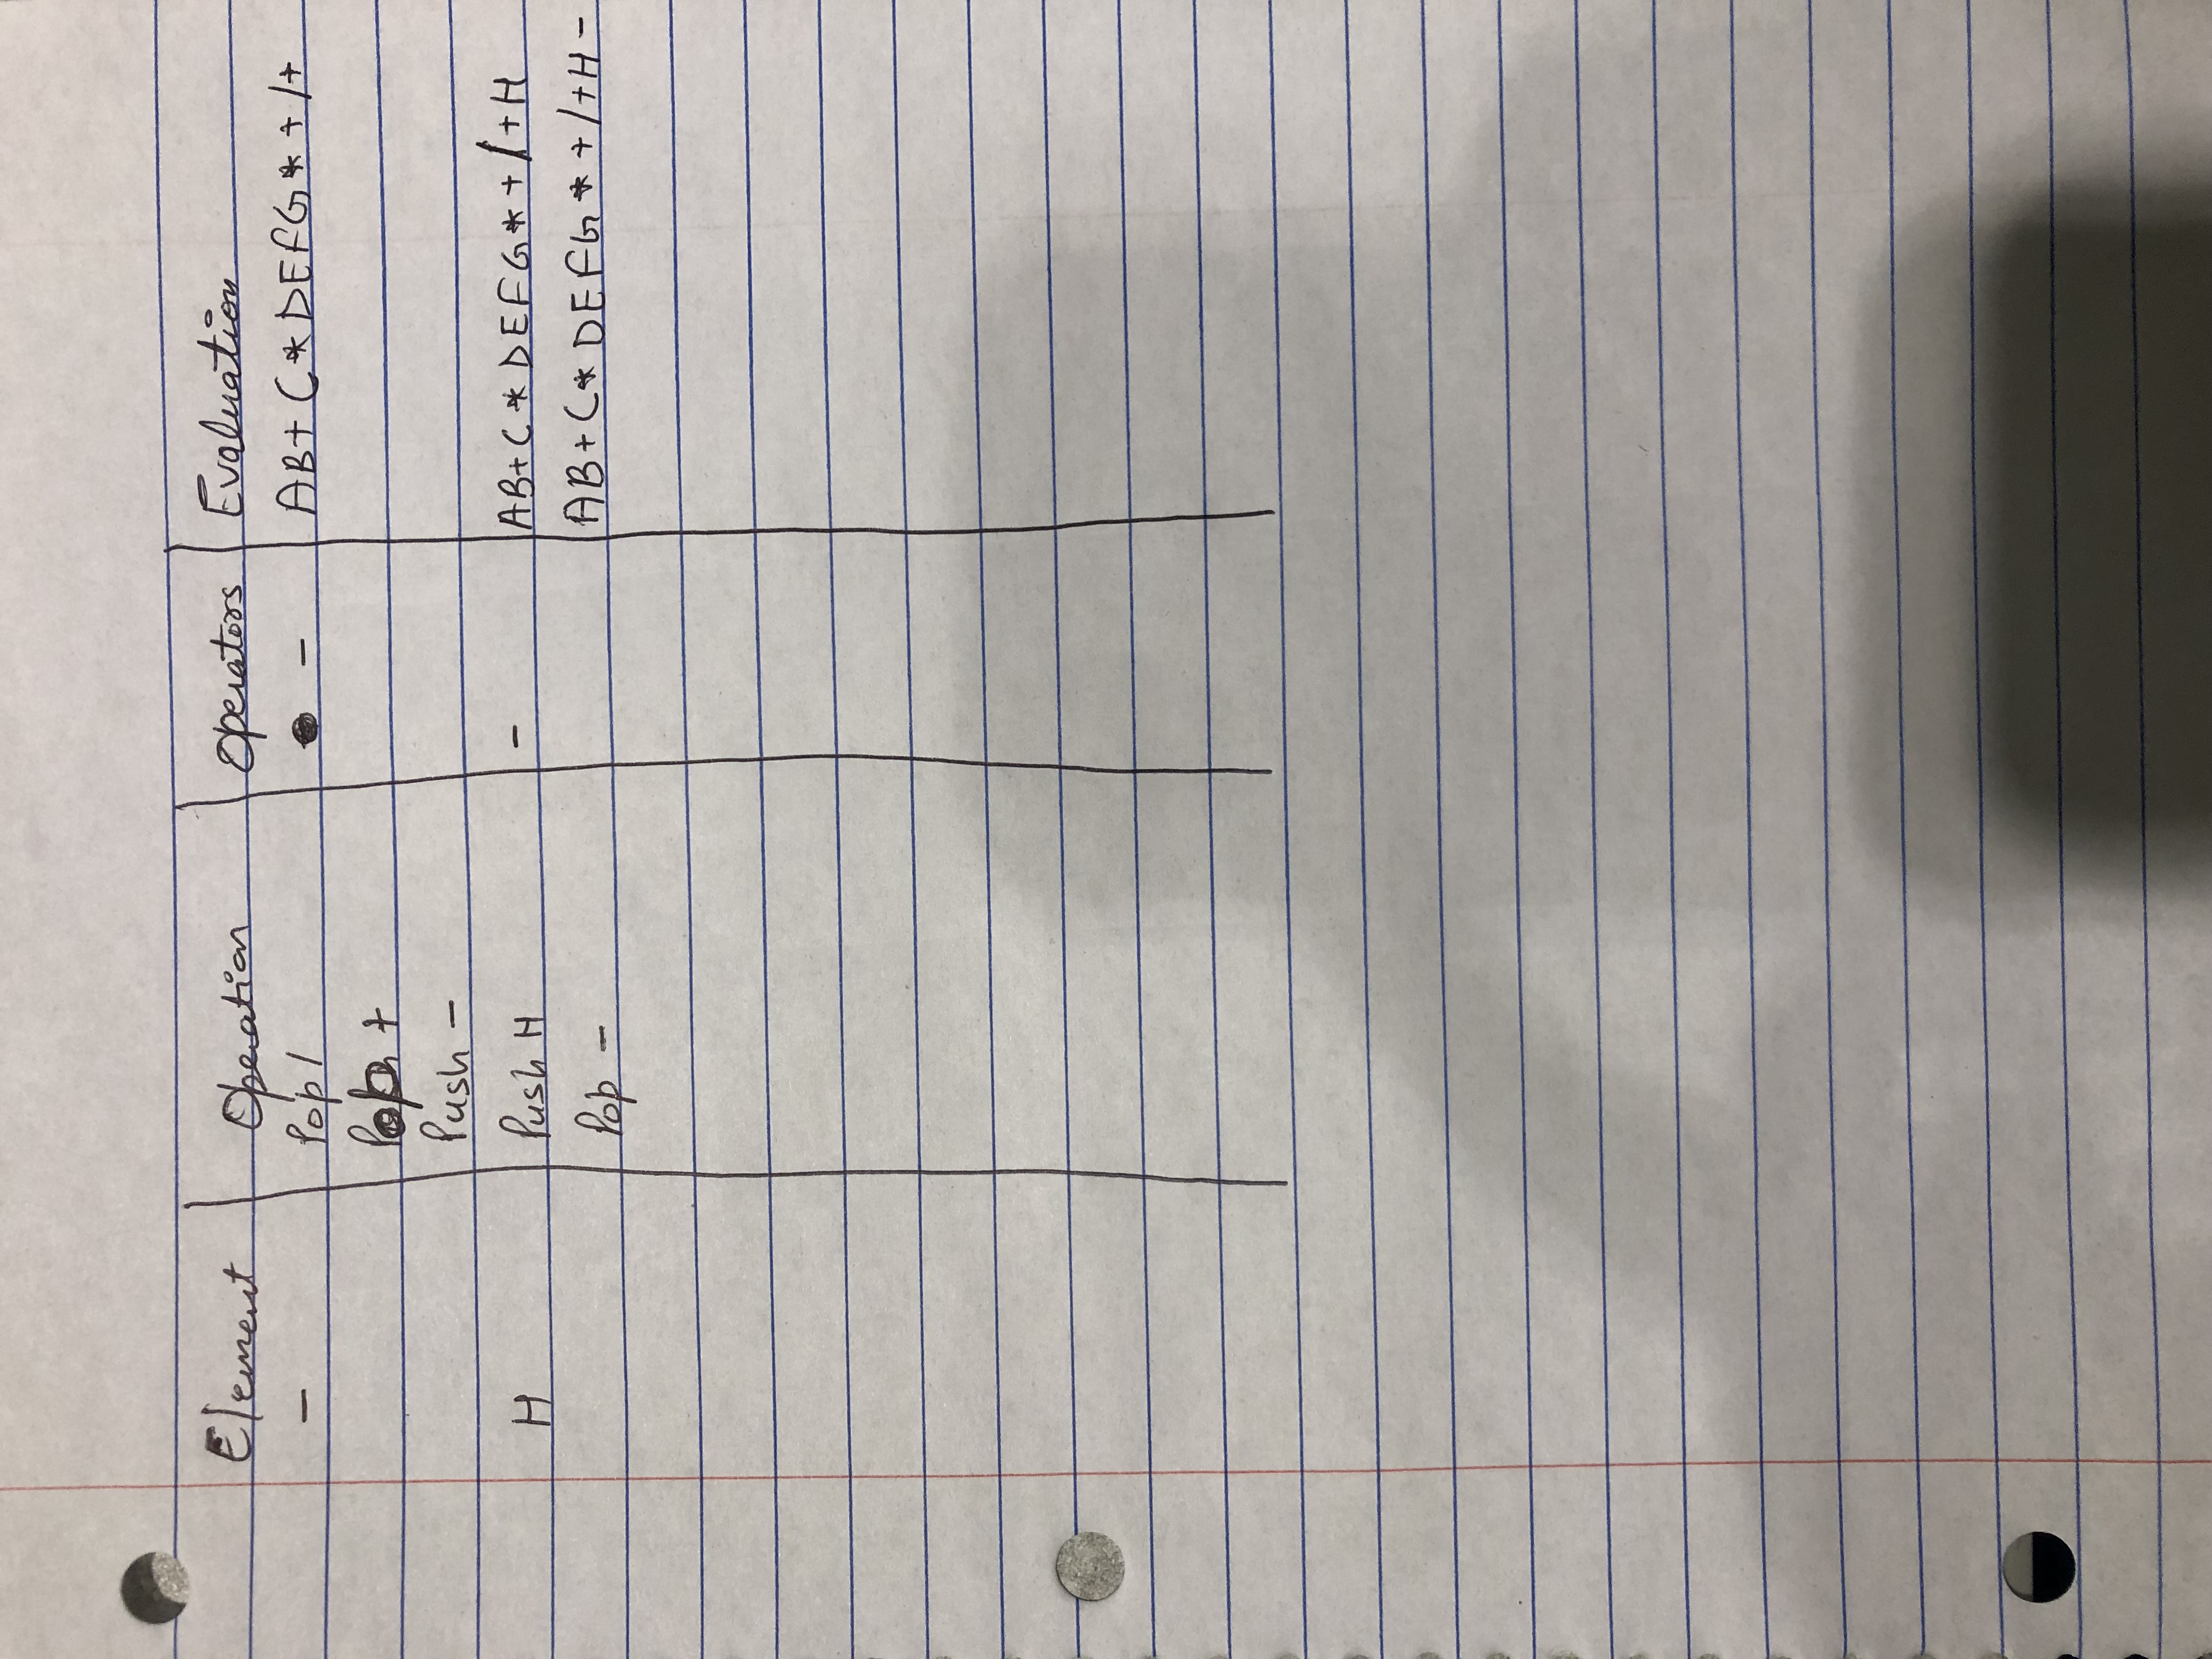 Element Operation Operators Evaluation
− Pop / − AB+C*DEFG*+/+
Pop +
Push −
H Push H − AB+C*DEFG*+/+H
Pop − AB+C*DEFG*+/+H−